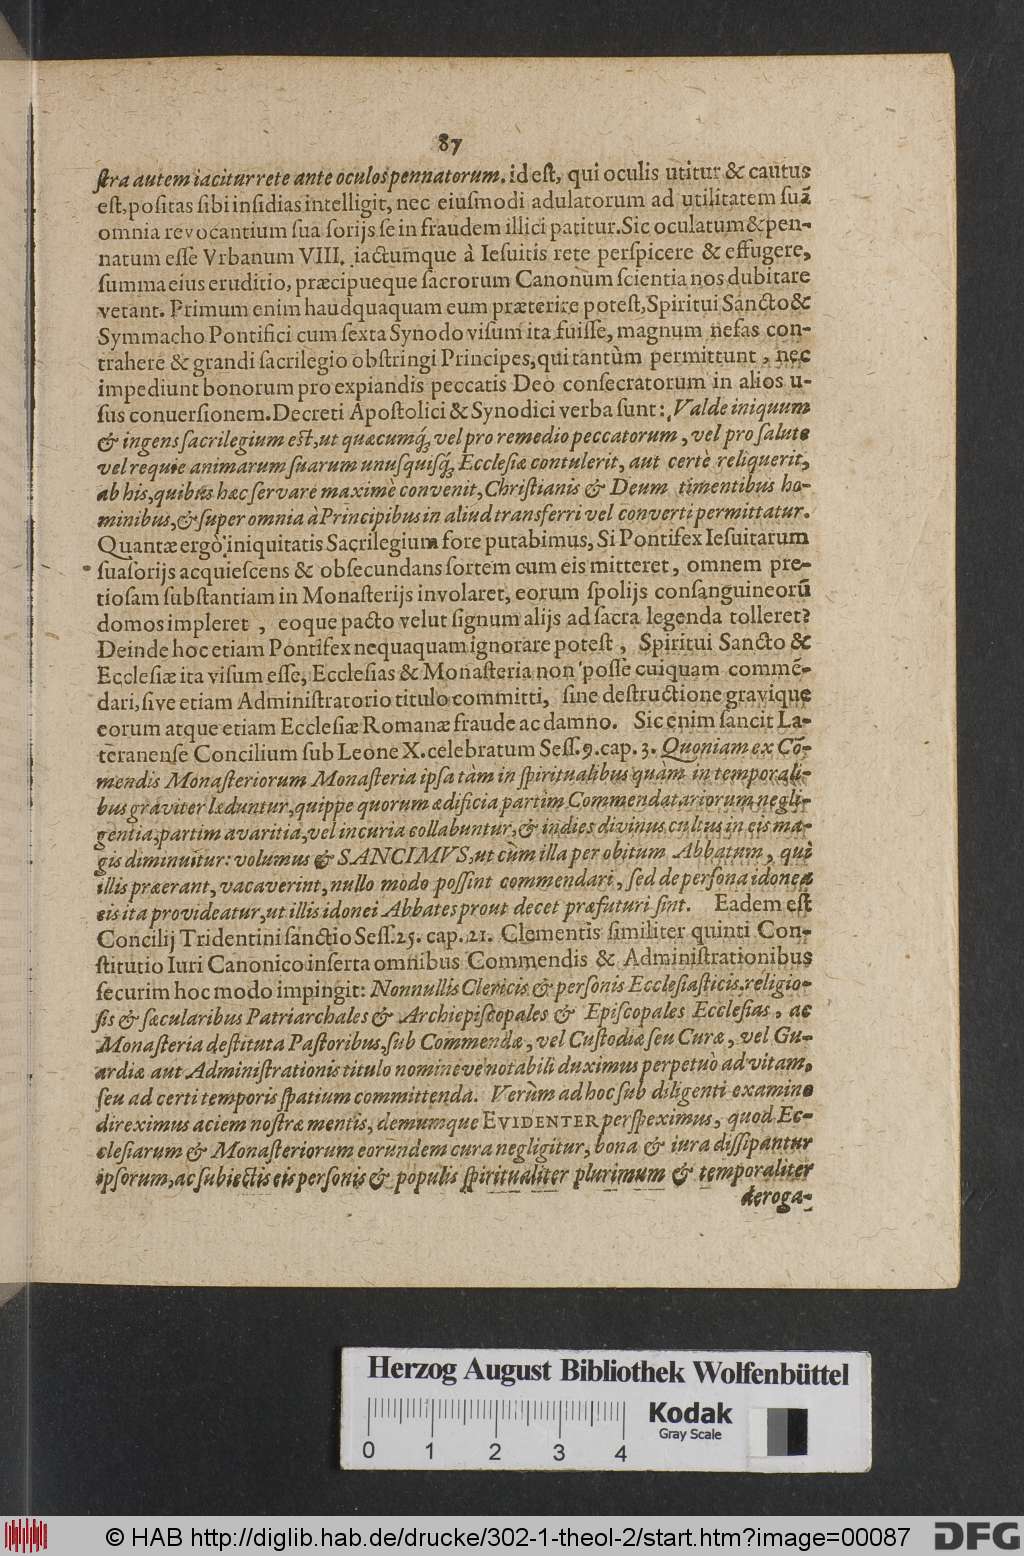 87
ſtra autem iacitur rete ante oculos pennatorum. id eſt, qui oculis utitur & cautus
eſt, poſitas ſibi inſidias intelligit, nec eiuſmodi adulatorum ad utilitatem ſuã
omnia revocantium ſua ſorijs ſe in fraudem illici patitur. Sic oculatum & pen-
natum eſſe Vrbanum VIII. iactumque à Ieſuitis rete perſpicere & effugere,
ſumma eius eruditio, præcipueque ſacrorum Canonum ſcientia nos dubitare
vetant. Primum enim haudquaquam eum præterire poteſt, Spiritui Sancto &
Symmacho Pontifici cum ſexta Synodo viſum ita fuiſſe, magnum nefas con-
trahere & grandi ſacrilegio obſtringi Principes, qui tantùm permittunt, nec
impediunt bonorum pro expiandis peccatis Deo conſecratorum in alios u-
ſus conuerſionem. Decreti Apoſtolici & Synodici verba ſunt: Valde iniquum
& ingens ſacrilegium eſt, ut quæcumq́, vel pro remedio peccatorum, vel pro ſalute
vel requie animarum ſuarum unuſquiſq́, Eccleſiæ contulerit, aut certè reliquerit,
ab his, quibus hæc ſervare maximè convenit, Chriſtianis & Deum timentibus ho-
minibus, & ſuper omnia à Principibus in aliud transferri vel converti permittatur.
Quantæ ergò iniquitatis Sacrilegium fore putabimus, Si Pontifex Ieſuitarum
ſuaſorijs acquieſcens & obſecundans ſortem cum eis mitteret, omnem pre-
tioſam ſubſtantiam in Monaſterijs involaret, eorum ſpolijs conſanguineorũ
domos impleret , eoque pacto velut ſignum alijs ad ſacra legenda tolleret?
Deinde hoc etiam Pontifex nequaquam ignorare poteſt, Spiritui Sancto &
Eccleſiæ ita viſum eſſe, Eccleſias & Monaſteria non poſſe cuiquam commẽ-
dari, ſive etiam Adminiſtratorio titulo committi, ſine deſtructione gravique
eorum atque etiam Eccleſiæ Romanæ fraude ac damno. Sic enim ſancit La-
teranenſe Concilium ſub Leone X. celebratum Seſſ. 9. cap. 3. Quoniam ex Cõ-
mendis Monaſteriorum Monaſteria ipſa tàm in ſpiritualibus quam in temporali-
bus graviter læduntur, quippe quorum ædificia partim Commendatariorum negli-
gentia, partim avaritia, vel incuria collabuntur, & indies divinus cultus in eis ma-
gis diminuitur: volumus & SANCIMVS, ut cùm illa per obitum Abbatum, qui
illis præerant, vacaverint, nullo modo poſſint commendari, ſed de perſona idonea
eis ita provideatur, ut illis idonei Abbates prout decet præfuturi ſint. Eadem eſt
Concilij Tridentini ſanctio Seſſ. 25. cap. 21. Clementis ſimiliter quinti Con-
ſtitutio Iuri Canonico inſerta omnibus Commendis & Adminiſtrationibus
ſecurim hoc modo impingit: Nonnullis Clericis & perſonis Eccleſiaſticis, religio-
ſis & ſæcularibus Patriarchales & Archiepiſcopales & Epiſcopales Eccleſias, ac
Monaſteria deſtituta Paſtoribus, ſub Commendæ, vel Cuſtodiæ ſeu Curæ, vel Gu-
ardiæ aut Adminiſtrationis titulo nomine ve notabili duximus perpetuò ad vitam,
ſeu ad certi temporis ſpatium committenda. Verùm ad hoc ſub diligenti examine
direximus aciem noſtræ mentis, demumque EVIDENTER perſpeximus, quod Ec-
cleſiarum & Monaſteriorum eorundem cura negligitur, bona & iura diſſipantur
ipſorum, ac ſubiectis eis perſonis & populis ſpiritualiter plurimum & temporaliter
deroga-
Herzog August Bibliothek Wolfenbüttel
Kodak
Gray Scale
0 1 2 3 4
© HAB http://diglib.hab.de/drucke/302-1-theol-2/start.htm?image=00087
DFG